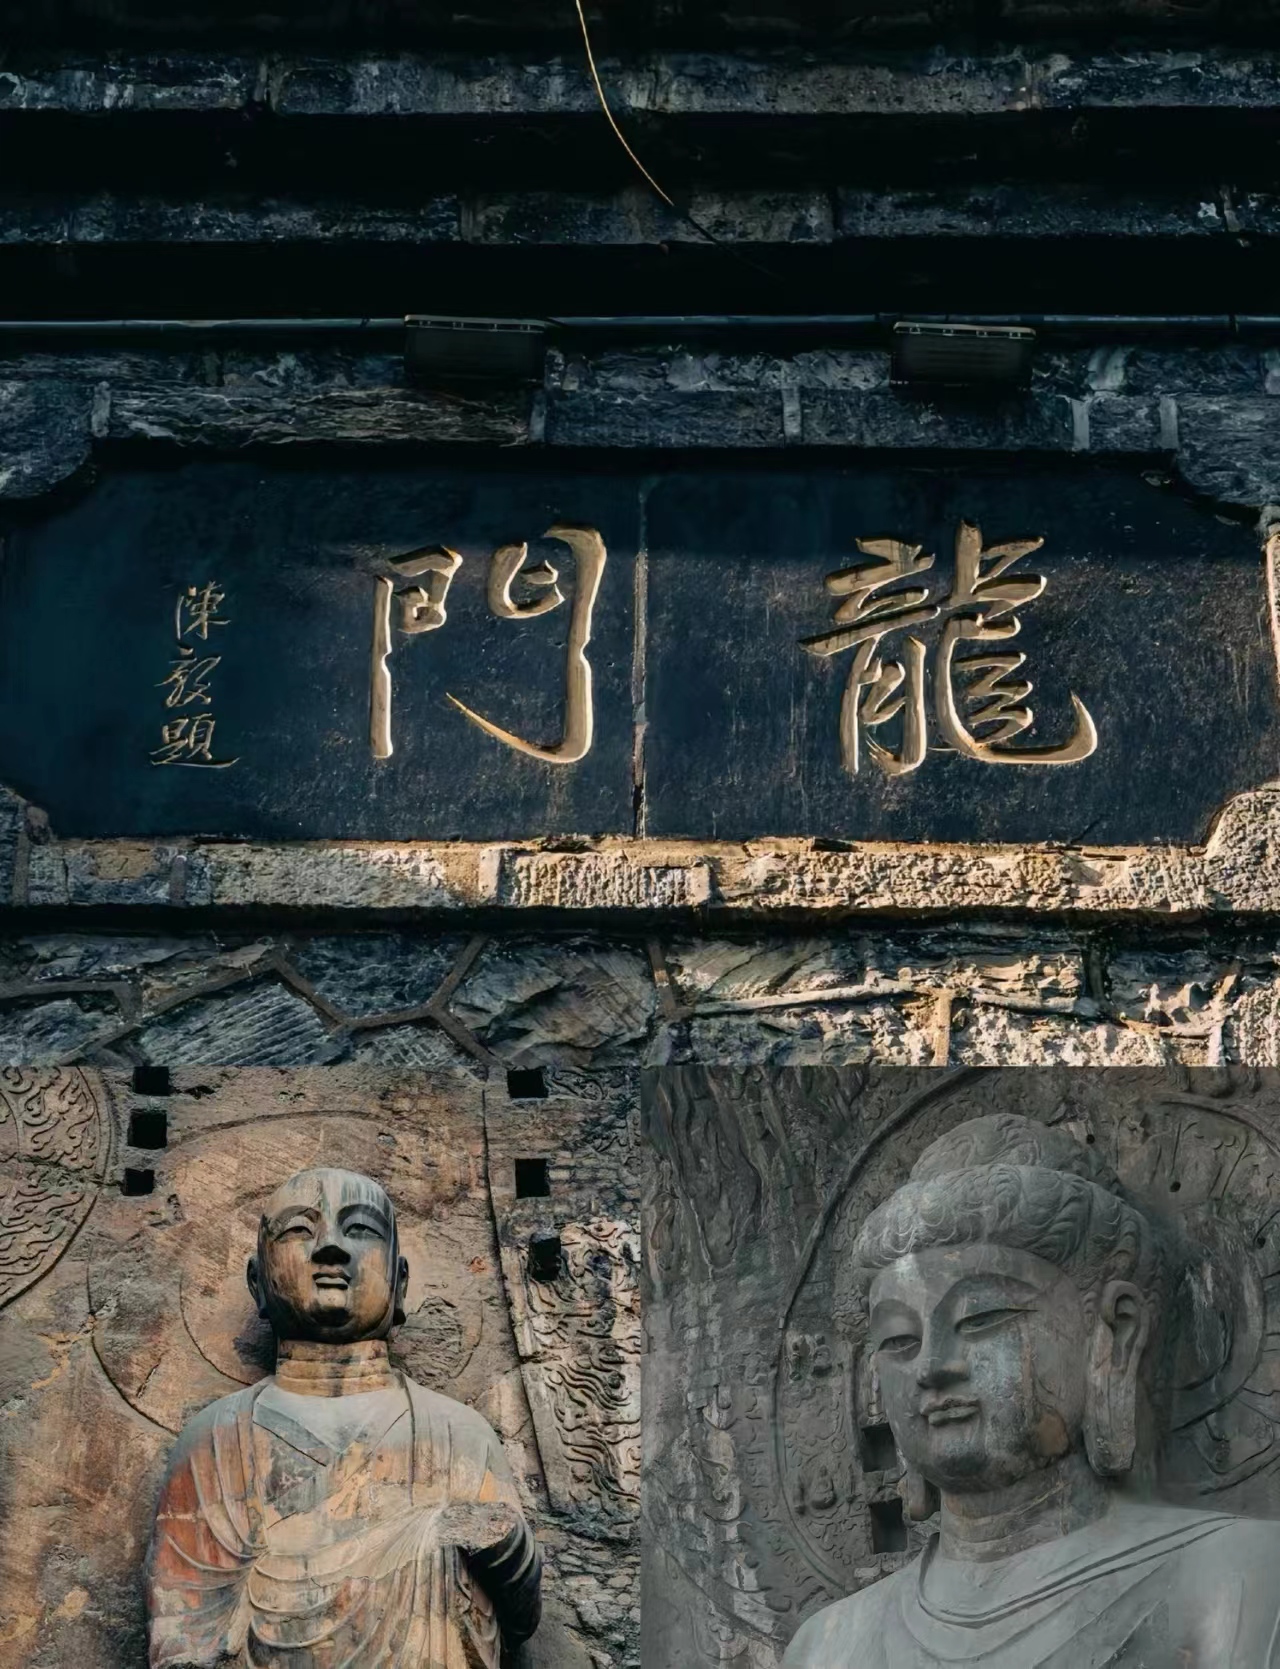 龍門
陳毅題